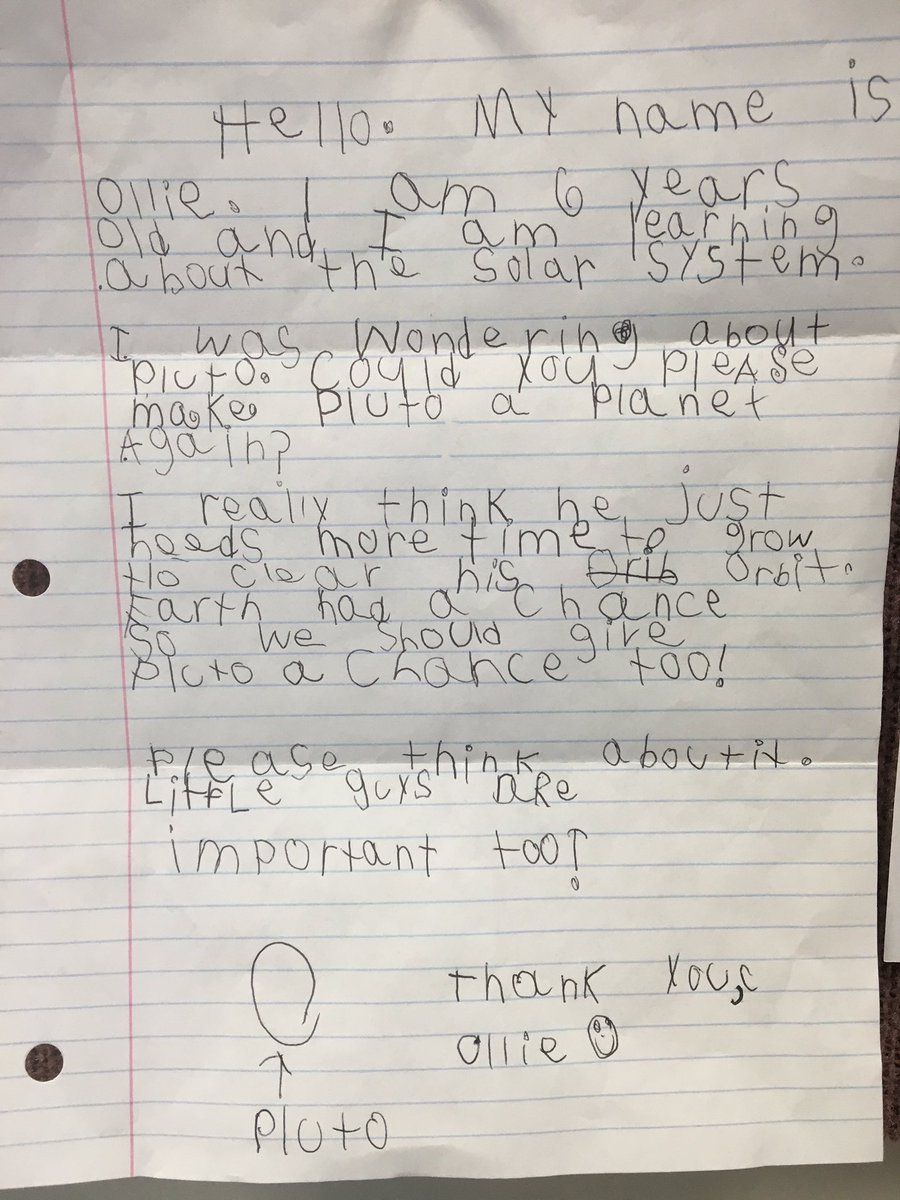 Hello. My name is
Ollie. I am 6 years
old and I am learning
about the solar system.
I was wondering about
Pluto. Could you pleAse
make Pluto a planet
Again?
I really think he just
needs more time to grow
to clear his Orib orbit.
Earth had a chance
so we should give
Pluto a chance too!
Please think about it.
LittLe guys aRe
important too!
thank you,
Ollie
Pluto